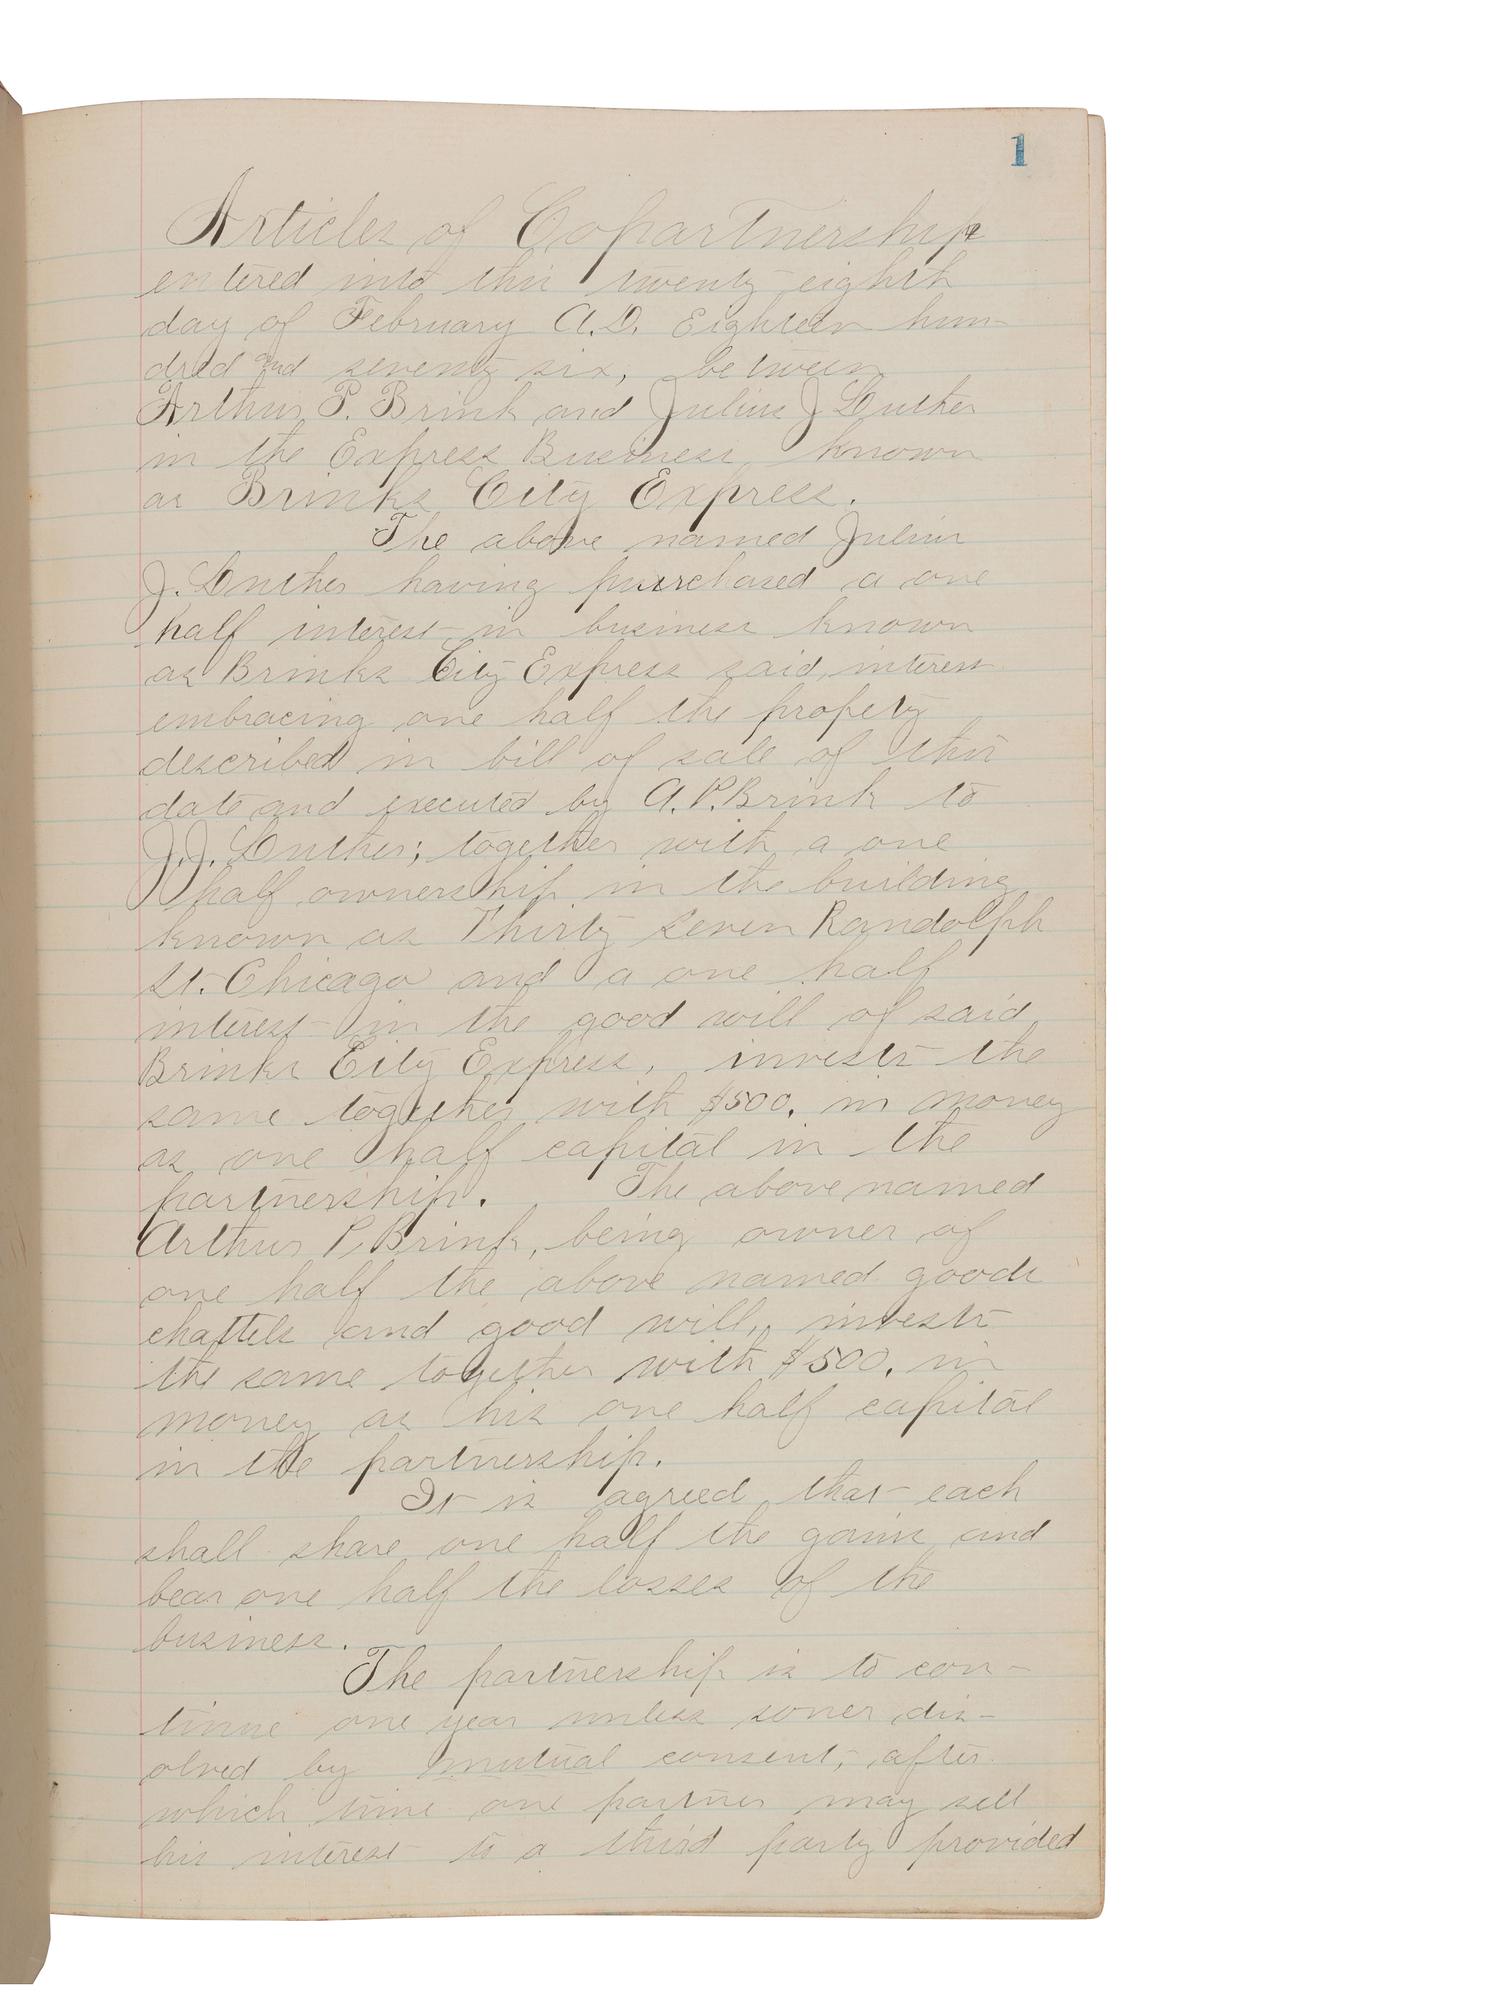 1
Articles of Copartnership
entered into this twenty-eighth
day of February A.D. Eighteen hun-
dred and seventy six, between
Arthur P. Brink and Julius J Luther
in the Express Business, known
as Brinks City Express.
The above named Julius
J. Luther having purrchased a one
half interest in business known
as Brinks City Express said, interest
embracing one half the propety
described in bill of sale of this
date and executed by A. P. Brink to
J.J. Luther; together with a one
half ownership in the building
known as Thirty Seven Randolph
St. Chicago and a one half
interest in the good will of said
Brinks City Express, invests the
same together with $500. in money
as one half capital in the
partnership. The above named
Arthur P. Brink, being owner of
one half the above named goods
chattels and good will, invests
the same together with $500. in
money as his one half capital
in the partnership.
It is agreed that each
shall share one half the gains and
bear one half the losses of the
business.
The partnership is to con-
tinue one year unless soner dis-
olved by mutual consent, after
which time one partner may sell
his interest to a third party provided